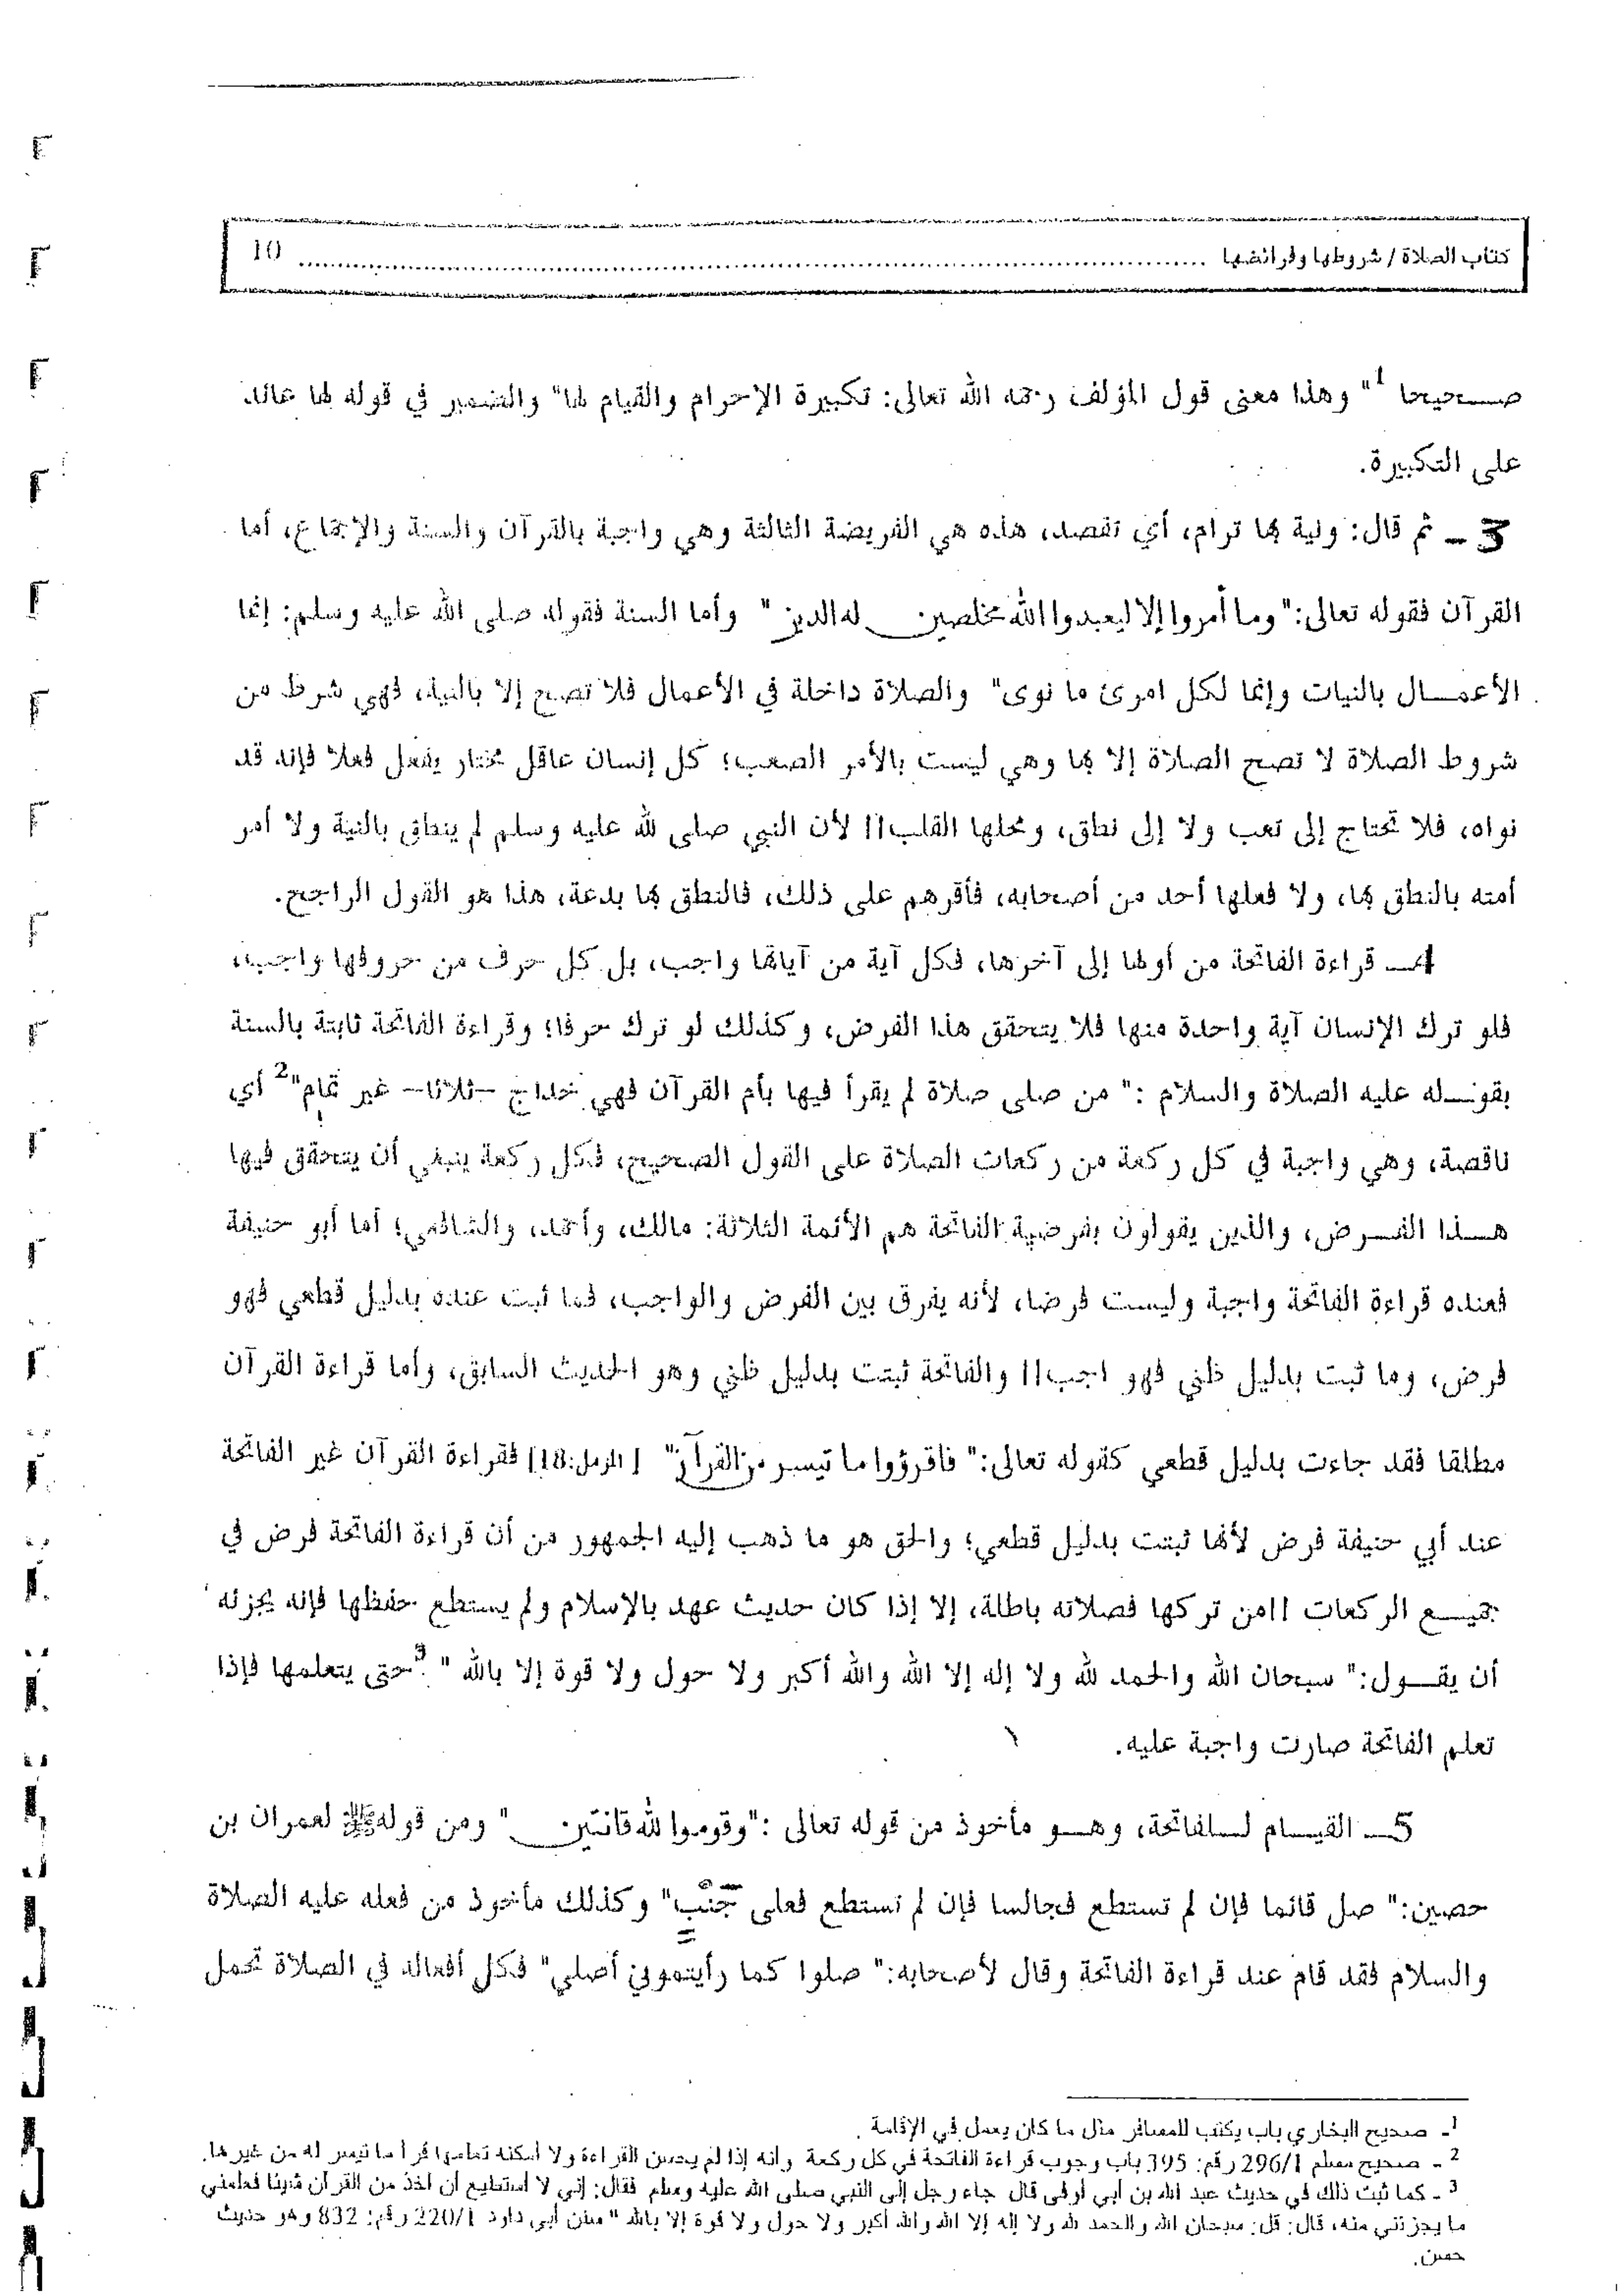 كتاب الصلاة / شروطها وفرائضها ........................................ 10
صـــحيحا 1" وهذا معنى قول المؤلف رحمه الله تعالى: تكبيرة الإحرام والقيام لها" والضمير في قوله لها عائد
على التكبيرة.
3 ـ ثم قال: ونية بها ترام، أي تقصد، هذه هي الفريضة الثالثة وهي واجبة بالقرآن والسنة والإجماع، أما
القرآن فقوله تعالى:" وما أمروا إلا ليعبدوا الله مخلصين له الدين " وأما السنة فقوله صلى الله عليه وسلم: إنما
الأعمـــال بالنيات وإنما لكل امرئ ما نوى" والصلاة داخلة في الأعمال فلا تصح إلا بالنية، فهي شرط من
شروط الصلاة لا تصح الصلاة إلا بها وهي ليست بالأمر الصعب؛ كل إنسان عاقل مختار يفعل فعلا فإنه قد
نواه، فلا تحتاج إلى تعب ولا إلى نطق، ومحلها القلب|| لأن النبي صلى لله عليه وسلم لم ينطق بالنية ولا أمر
أمته بالنطق بها، ولا فعلها أحد من أصحابه، فأقرهم على ذلك، فالنطق بها بدعة، هذا هو القول الراجح.
4ـ قراءة الفاتحة من أولها إلى آخرها، فكل آية من آياتها واجب، بل كل حرف من حروفها واجب،
فلو ترك الإنسان آية واحدة منها فلا يتحقق هذا الفرض، وكذلك لو ترك حرفا؛ وقراءة الفاتحة ثابتة بالسنة
بقوـــله عليه الصلاة والسلام :" من صلى صلاة لم يقرأ فيها بأم القرآن فهي خداج –ثلاثا– غير تمام"2 أي
ناقصة، وهي واجبة في كل ركعة من ركعات الصلاة على القول الصحيح، فكل ركعة ينبغي أن يتحقق فيها
هـــذا الفـــرض، والذين يقولون بفرضية الفاتحة هم الأئمة الثلاثة: مالك، وأحمد، والشافعي؛ أما أبو حنيفة
فعنده قراءة الفاتحة واجبة وليست فرضا، لأنه يفرق بين الفرض والواجب، فما ثبت عنده بدليل قطعي فهو
فرض، وما ثبت بدليل ظني فهو اجب|| والفاتحة ثبتت بدليل ظني وهو الحديث السابق، وأما قراءة القرآن
مطلقا فقد جاءت بدليل قطعي كقوله تعالى:" فاقرؤوا ما تيسر من القرآن" [المزمل:18] فقراءة القرآن غير الفاتحة
عند أبي حنيفة فرض لأنها ثبتت بدليل قطعي؛ والحق هو ما ذهب إليه الجمهور من أن قراءة الفاتحة فرض في
جميـــع الركعات ||من تركها فصلاته باطلة، إلا إذا كان حديث عهد بالإسلام ولم يستطع حفظها فإنه يجزئه
أن يقـــول:" سبحان الله والحمد لله ولا إله إلا الله والله أكبر ولا حول ولا قوة إلا بالله "3 حتى يتعلمها فإذا
تعلم الفاتحة صارت واجبة عليه.
5ـ القيـــام لـــلفاتحة، وهـــو مأخوذ من قوله تعالى :"وقوموا لله قانتين " ومن قوله ﷺ لعمران بن
حصين:" صل قائما فإن لم تستطع فجالسا فإن لم تستطع فعلى جَنْب" وكذلك مأخوذ من فعله عليه الصلاة
والسلام فقد قام عند قراءة الفاتحة وقال لأصحابه:" صلوا كما رأيتموني أصلي" فكل أفعاله في الصلاة تحمل
1ـ صحيح البخاري باب يكتب للمسافر مثل ما كان يعمل في الإقامة .
2 ـ صحيح مسلم 296/1 رقم: 395 باب وجوب قراءة الفاتحة في كل ركعة وانه إذا لم يحسن القراءة ولا أمكنه تعلمها قرأ ما تيسر له من غيرها.
3 ـ كما ثبت ذلك في حديث عبد الله بن أبي أوفى قال جاء رجل إلى النبي صلى الله عليه وسلم فقال: إني لا أستطيع أن آخذ من القرآن شيئا فعلمني
ما يجزئني منه، قال: قل: سبحان الله والحمد لله ولا إله إلا الله والله أكبر ولا حول ولا قوة إلا بالله " سنن أبي داود 220/1 رقم: 832 وهو حديث
حسن.